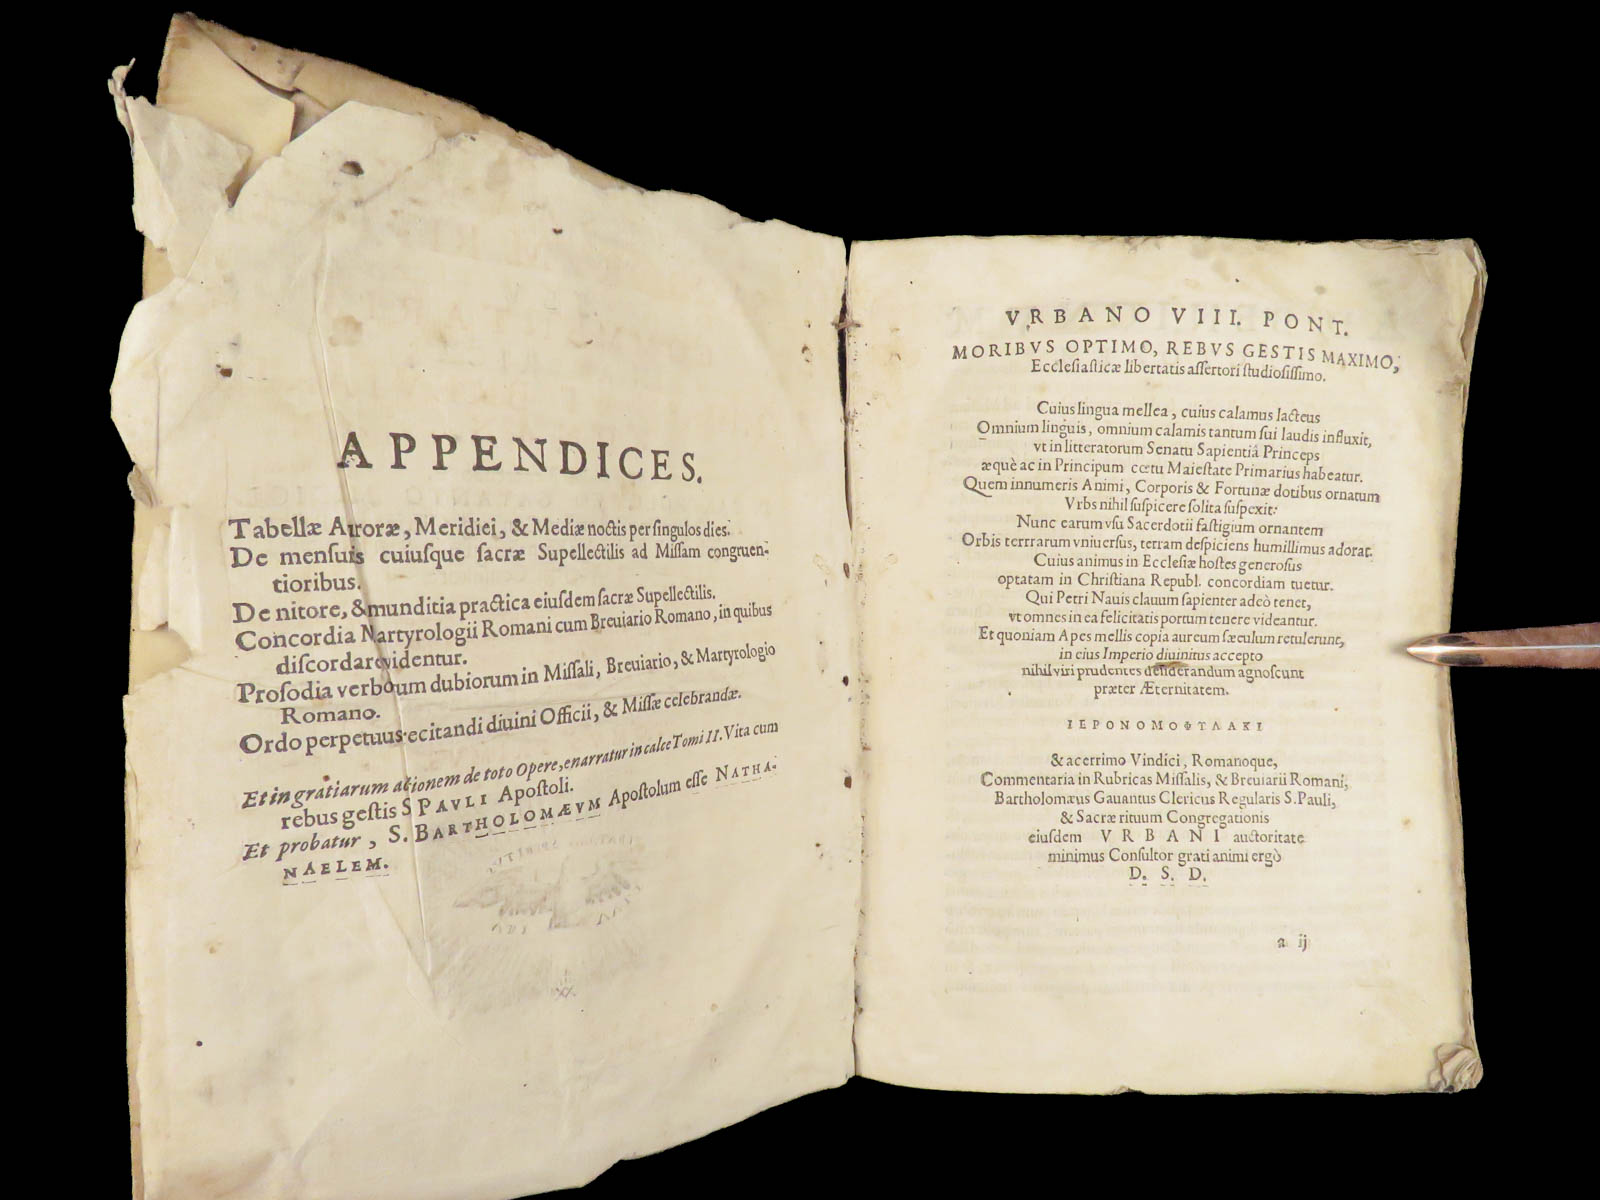 APPENDICES.
Tabellæ Auroræ, Meridiei, & Mediæ noctis per singulos dies.
De mensuis cuiusque sacræ Supellectilis ad Missam congruen-
tioribus.
De nitore, & munditia practica eiusdem sacræ Supellectilis.
Concordia Martyrologii Romani cum Breviario Romano, in quibus
discordare videntur.
Prosodia verborum dubiorum in Missali, Breuiario, & Martyrologio
Romano.
Ordo perpetuus recitandi diuini Officii, & Missæ celebrandæ.
Et in gratiarum actionem de toto Opere, enarratur in calce Tomi II. Vita cum
rebus gestis S PAVLI Apostoli.
Et probatur, S. BARTHOLOMÆVM Apostolum esse NATHA-
NAELEM.
VRBANO VIII. PONT.
MORIBVS OPTIMO, REBVS GESTIS MAXIMO,
Ecclesiasticæ libertatis assertori studiosissimo.
Cuius lingua mellea, cuius calamus lacteus
Omnium linguis, omnium calamis tantum sui laudis influxit,
vt in litteratorum Senatu Sapientiâ Princeps
æquè ac in Principum cœtu Maiestate Primarius habeatur.
Quem innumeris Animi, Corporis & Fortunæ dotibus ornatum
Vrbs nihil suspicere solita suspexit:
Nunc earum vsu Sacerdotii fastigium ornantem
Orbis terrrarum vniuersus, terram despiciens humillimus adorat.
Cuius animus in Ecclesiæ hostes generosus
optatam in Christiana Republ. concordiam tuetur.
Qui Petri Nauis clauum sapienter adeò tenet,
vt omnes in ea felicitatis portum tenere videantur.
Et quoniam Apes mellis copia aureum sæculum retulerunt,
in eius Imperio diuinitus accepto
nihil viri prudentes desiderandum agnoscunt
præter Æternitatem.
ΙΕΡΟΝΟΜΟΦΥΛΑΚΙ
& acerrimo Vindici, Romanoque,
Commentaria in Rubricas Missalis, & Breuiarii Romani,
Bartholomæus Gauantus Clericus Regularis S. Pauli,
& Sacræ rituum Congregationis
eiusdem VRBANI auctoritate
minimus Consultor grati animi ergò
D. S. D.
a ij